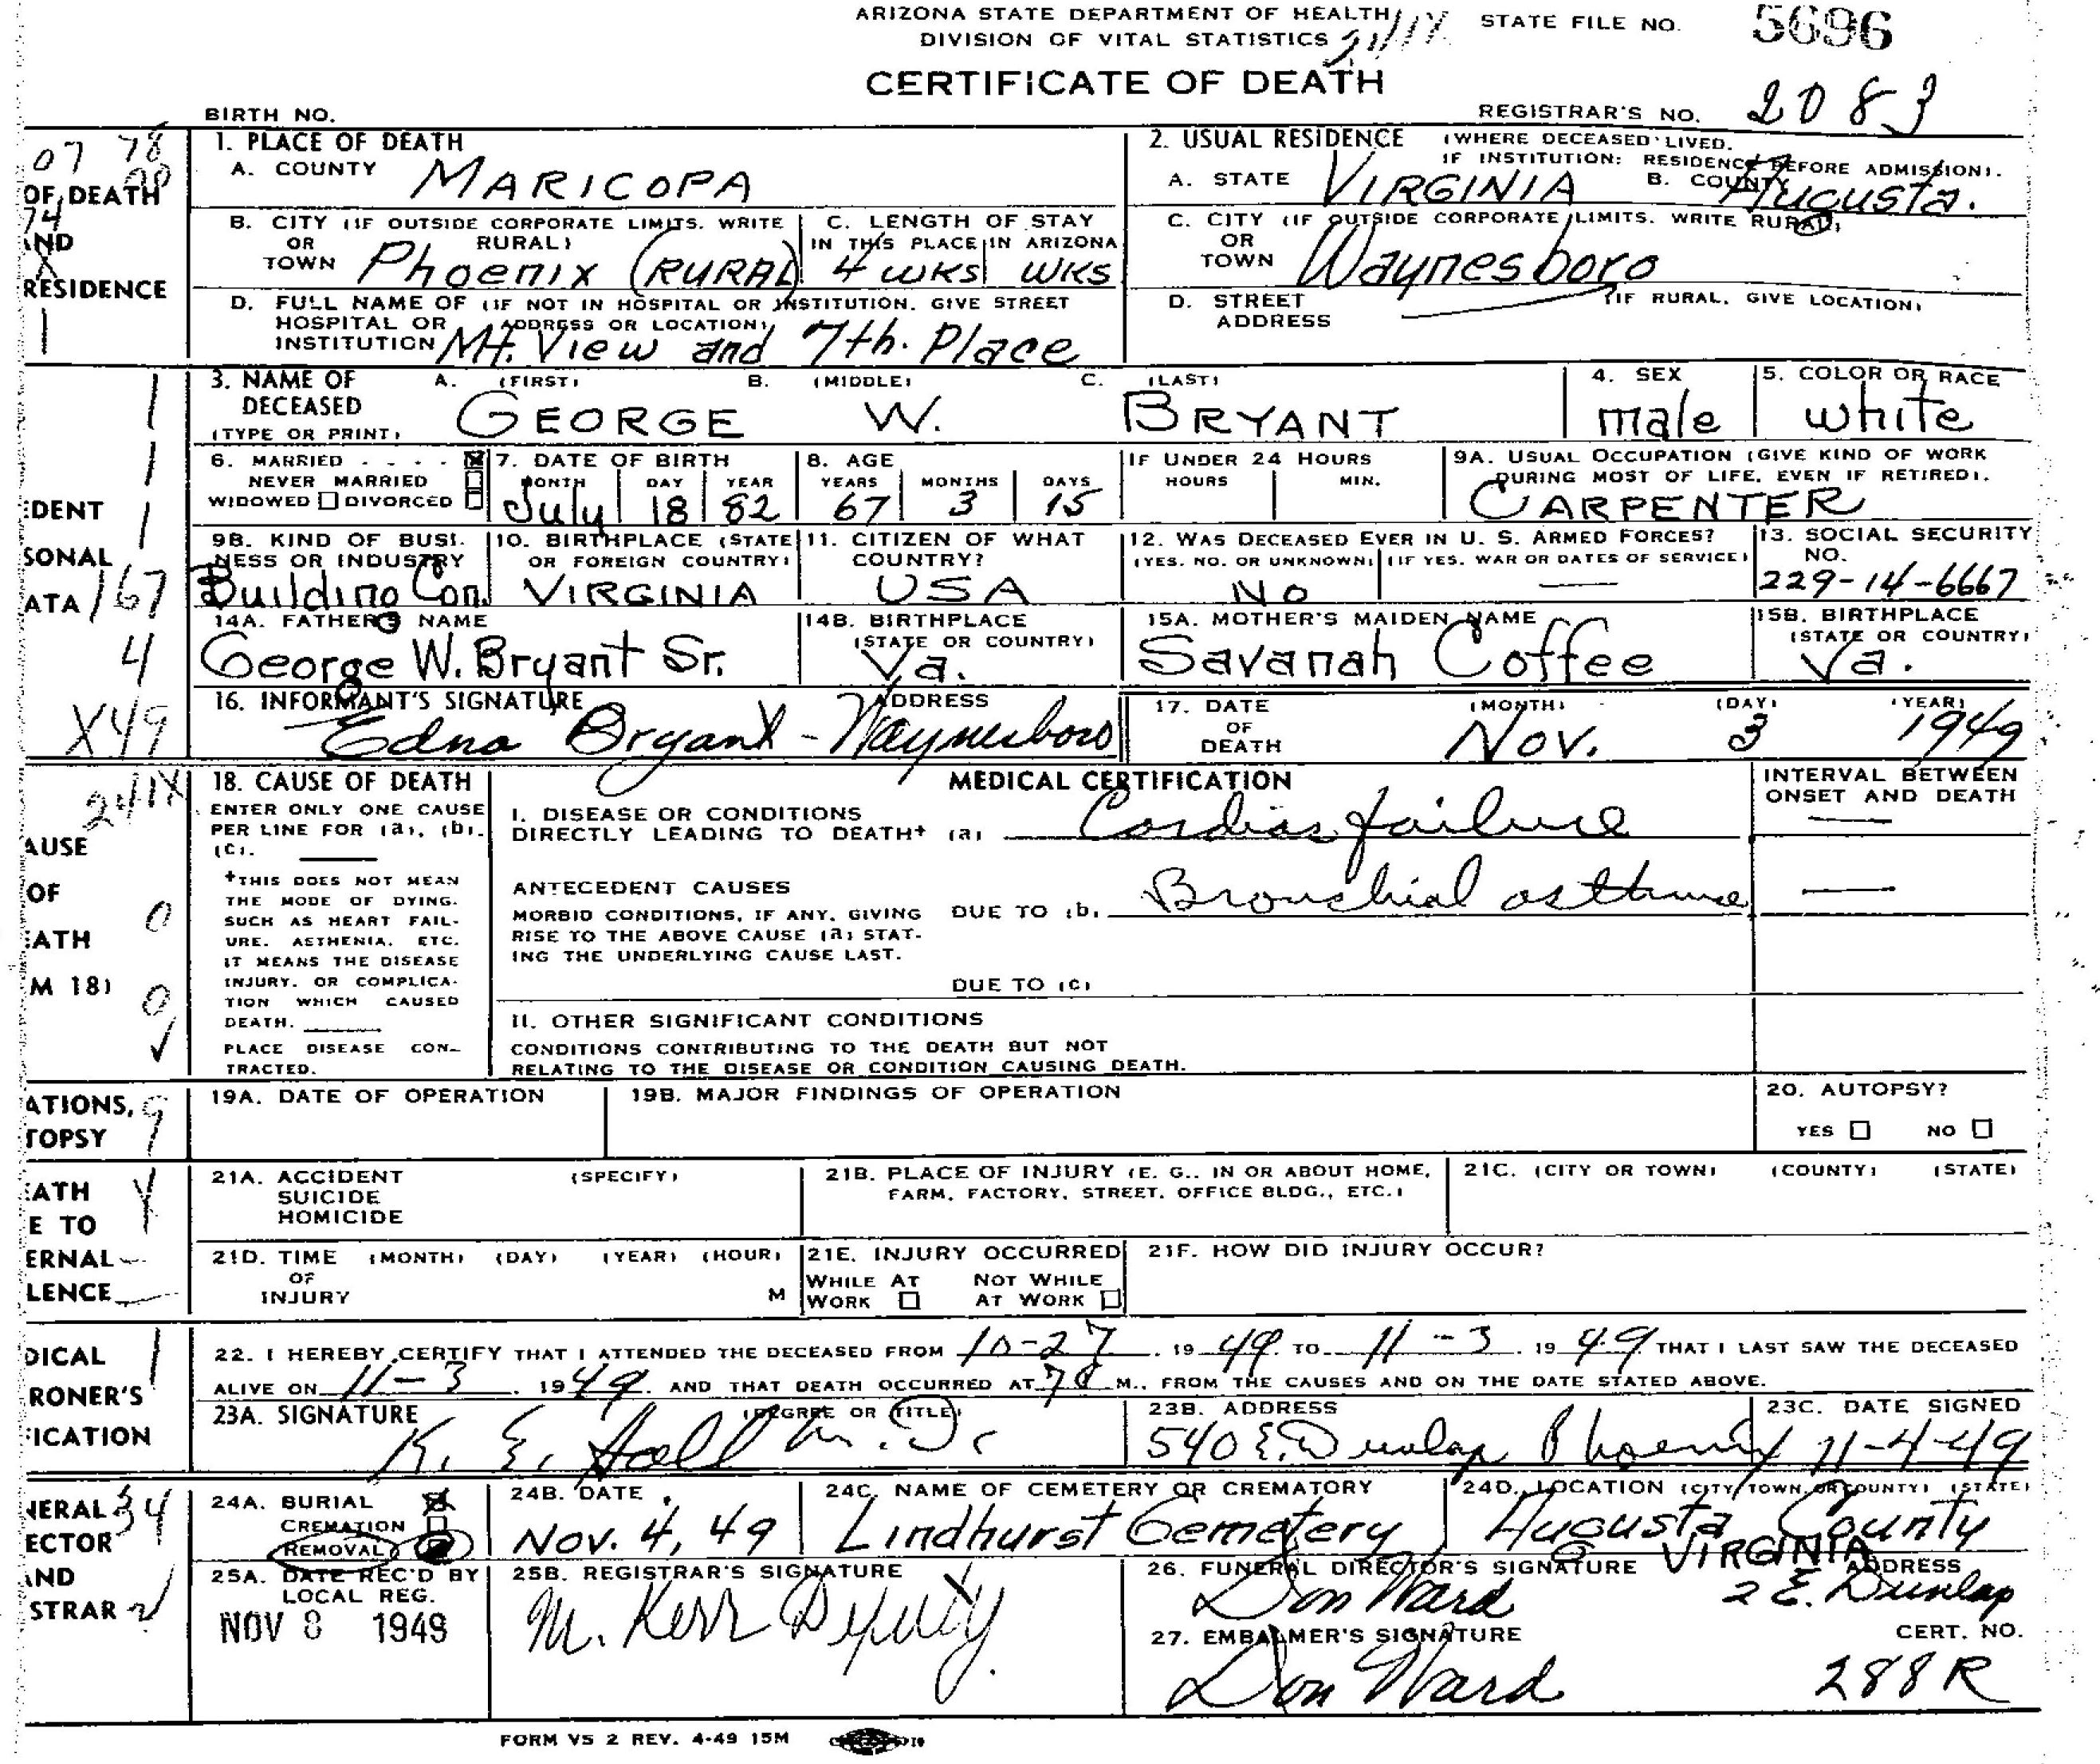 ARIZONA STATE DEPARTMENT OF HEALTH
DIVISION OF VITAL STATISTICS
STATE FILE NO. 5696
CERTIFICATE OF DEATH
BIRTH NO.
REGISTRAR'S NO. 2083
07 78
OF DEATH
74
AND
X
RESIDENCE
1
1. PLACE OF DEATH
A. COUNTY MARICOPA
B. CITY (IF OUTSIDE CORPORATE LIMITS. WRITE
OR RURAL)
TOWN Phoenix (RURAL)
C. LENGTH OF STAY
IN THIS PLACE IN ARIZONA
4 WKS WKS
D. FULL NAME OF (IF NOT IN HOSPITAL OR INSTITUTION. GIVE STREET
HOSPITAL OR ADDRESS OR LOCATION)
INSTITUTION Mt. View and 7th. Place
2. USUAL RESIDENCE (WHERE DECEASED LIVED.
IF INSTITUTION: RESIDENCE BEFORE ADMISSION).
A. STATE VIRGINIA B. COUNTY Augusta.
C. CITY (IF OUTSIDE CORPORATE LIMITS. WRITE RURAL)
OR
TOWN Waynesboro
D. STREET (IF RURAL. GIVE LOCATION)
ADDRESS
3. NAME OF A. (FIRST) B. (MIDDLE) C. (LAST)
DECEASED
(TYPE OR PRINT) GEORGE W. BRYANT
4. SEX
male
5. COLOR OR RACE
white
6. MARRIED
NEVER MARRIED
WIDOWED DIVORCED
7. DATE OF BIRTH
MONTH DAY YEAR
July 18 82
8. AGE
YEARS MONTHS DAYS
67 3 15
IF UNDER 24 HOURS
HOURS MIN.
9A. USUAL OCCUPATION (GIVE KIND OF WORK
DURING MOST OF LIFE. EVEN IF RETIRED).
CARPENTER
9B. KIND OF BUSI-
NESS OR INDUSTRY
Building Con.
10. BIRTHPLACE (STATE
OR FOREIGN COUNTRY)
VIRGINIA
11. CITIZEN OF WHAT
COUNTRY?
USA
12. WAS DECEASED EVER IN U. S. ARMED FORCES?
(YES. NO. OR UNKNOWN) (IF YES. WAR OR DATES OF SERVICE)
No
13. SOCIAL SECURITY
NO.
229-14-6667
14A. FATHER'S NAME
George W. Bryant Sr.
14B. BIRTHPLACE
(STATE OR COUNTRY)
Va.
15A. MOTHER'S MAIDEN NAME
Savanah Coffee
15B. BIRTHPLACE
(STATE OR COUNTRY)
Va.
16. INFORMANT'S SIGNATURE ADDRESS
Edna Bryant - Waynesboro
17. DATE (MONTH) (DAY) (YEAR)
OF
DEATH Nov. 3 1949
18. CAUSE OF DEATH
ENTER ONLY ONE CAUSE
PER LINE FOR (a), (b).
(c).
+THIS DOES NOT MEAN
THE MODE OF DYING.
SUCH AS HEART FAIL-
URE. ASTHENIA. ETC.
IT MEANS THE DISEASE
INJURY. OR COMPLICA-
TION WHICH CAUSED
DEATH.
PLACE DISEASE CON-
TRACTED.
MEDICAL CERTIFICATION
I. DISEASE OR CONDITIONS
DIRECTLY LEADING TO DEATH+ (a) Cardiac failure
ANTECEDENT CAUSES
MORBID CONDITIONS, IF ANY, GIVING DUE TO (b) Bronchial asthma
RISE TO THE ABOVE CAUSE (a) STAT-
ING THE UNDERLYING CAUSE LAST.
DUE TO (c)
II. OTHER SIGNIFICANT CONDITIONS
CONDITIONS CONTRIBUTING TO THE DEATH BUT NOT
RELATING TO THE DISEASE OR CONDITION CAUSING DEATH.
INTERVAL BETWEEN
ONSET AND DEATH
19A. DATE OF OPERATION
19B. MAJOR FINDINGS OF OPERATION
20. AUTOPSY?
YES NO
21A. ACCIDENT (SPECIFY)
SUICIDE
HOMICIDE
21B. PLACE OF INJURY (E. G.. IN OR ABOUT HOME,
FARM, FACTORY, STREET, OFFICE BLDG., ETC.)
21C. (CITY OR TOWN) (COUNTY) (STATE)
21D. TIME (MONTH) (DAY) (YEAR) (HOUR)
OF
INJURY M
21E. INJURY OCCURRED
WHILE AT NOT WHILE
WORK AT WORK
21F. HOW DID INJURY OCCUR?
22. I HEREBY CERTIFY THAT I ATTENDED THE DECEASED FROM 10-27. 19 49. TO 11-3. 19 49 THAT I LAST SAW THE DECEASED
ALIVE ON 11-3. 19 49. AND THAT DEATH OCCURRED AT M., FROM THE CAUSES AND ON THE DATE STATED ABOVE.
23A. SIGNATURE (DEGREE OR TITLE)
K. E. Hall M.D.
23B. ADDRESS
540 E. Dunlap Phoenix
23C. DATE SIGNED
11-4-49
24A. BURIAL
CREMATION
REMOVAL
24B. DATE
Nov. 4, 49
24C. NAME OF CEMETERY OR CREMATORY
Lindhurst Cemetery
24D. LOCATION (CITY, TOWN, OR COUNTY) (STATE)
Augusta County
VIRGINIA
25A. DATE REC'D BY
LOCAL REG.
NOV 8 1949
25B. REGISTRAR'S SIGNATURE
M. Kerr Deputy
26. FUNERAL DIRECTOR'S SIGNATURE ADDRESS
Don Ward 2 E. Dunlap
27. EMBALMER'S SIGNATURE CERT. NO.
Don Ward 288R
FORM VS 2 REV. 4-49 15M